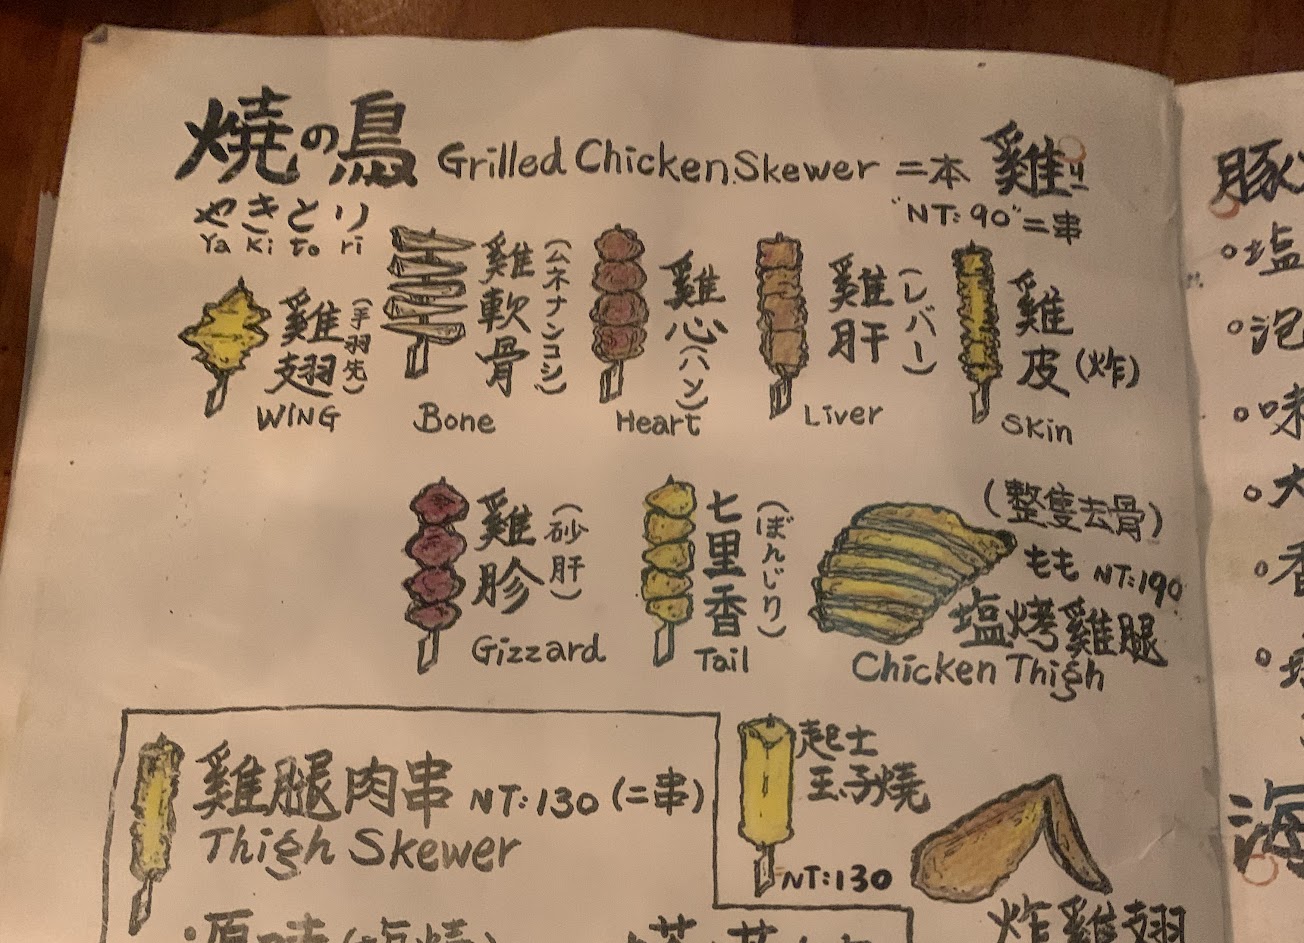 燒の鳥 Grilled Chicken Skewer 二本 雞
やきとり
Ya Ki to ri
"NT: 90" 二串
雞翅
(手羽先)
WING
雞軟骨
(ムネナンコシ)
Bone
雞心(ハン)
Heart
雞肝
(レバー)
Liver
雞皮(炸)
Skin
雞胗
(砂肝)
Gizzard
七里香
(ぼんじり)
Tail
(整隻去骨)
もも NT:190
塩烤雞腿
Chicken Thigh
雞腿肉串 NT:130 (二串)
Thigh Skewer
起士
玉子燒
NT:130
炸雞翅
豚
塩
泡
味
大
香
海